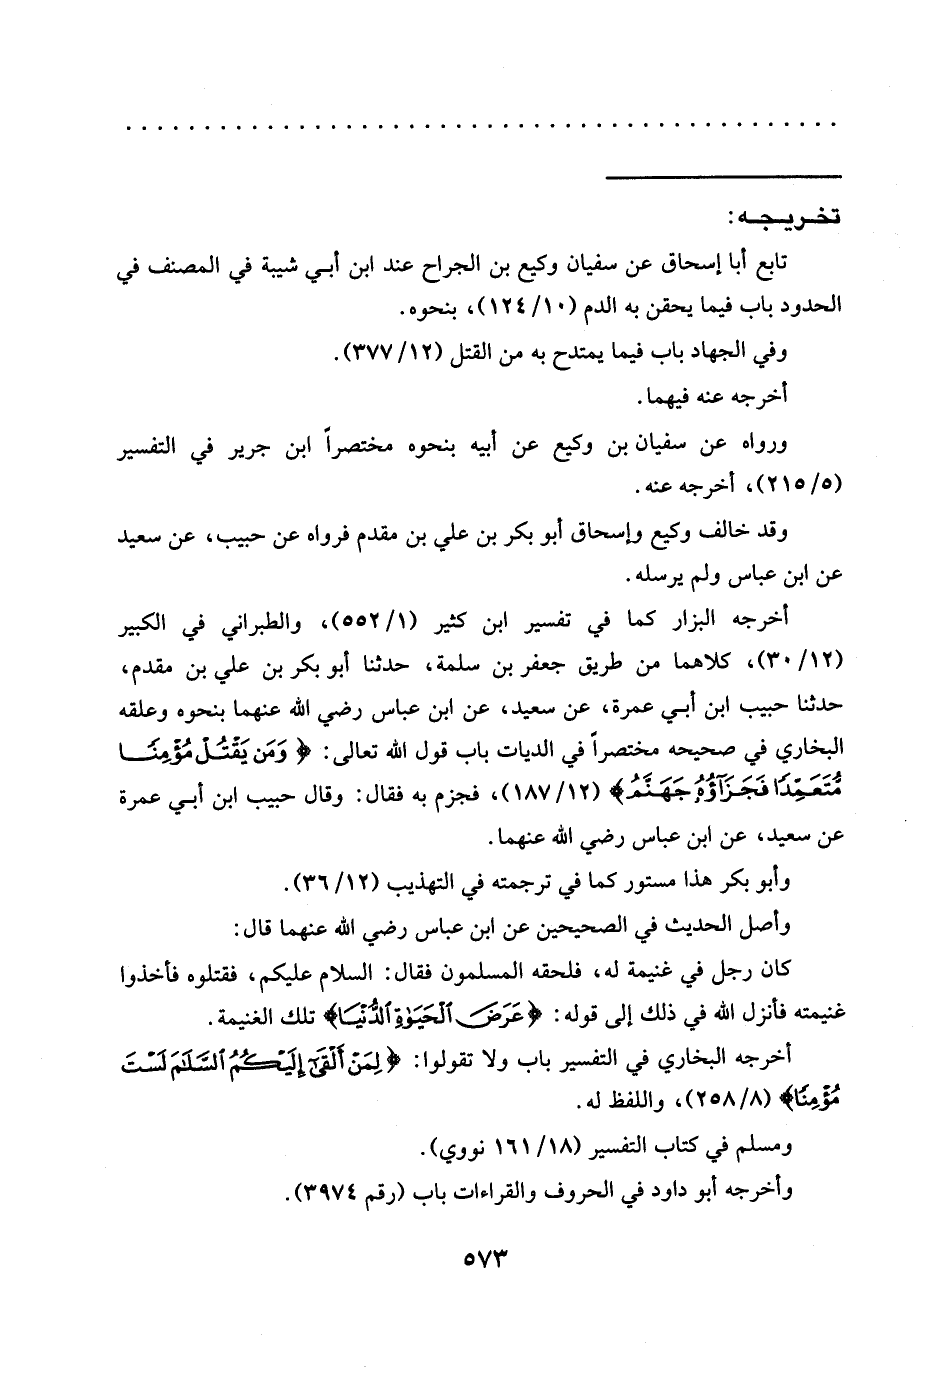 تخريجه:
تابع أبا إسحاق عن سفيان وكيع بن الجراح عند ابن أبي شيبة في المصنف في
الحدود باب فيما يحقن به الدم (١٠/ ١٢٤)، بنحوه.
وفي الجهاد باب فيما يمتدح به من القتل (١٢/ ٣٧٧).
أخرجه عنه فيهما.
ورواه عن سفيان بن وكيع عن أبيه بنحوه مختصراً ابن جرير في التفسير
(٥/ ٢١٥)، أخرجه عنه.
وقد خالف وكيع وإسحاق أبو بكر بن علي بن مقدم فرواه عن حبيب، عن سعيد
عن ابن عباس ولم يرسله.
أخرجه البزار كما في تفسير ابن كثير (١/ ٥٥٢)، والطبراني في الكبير
(١٢/ ٣٠)، كلاهما من طريق جعفر بن سلمة، حدثنا أبو بكر بن علي بن مقدم،
حدثنا حبيب ابن أبي عمرة، عن سعيد، عن ابن عباس رضي الله عنهما بنحوه وعلقه
البخاري في صحيحه مختصراً في الديات باب قول الله تعالى: ﴿وَمَن يَقْتُلْ مُؤْمِنًا
مُّتَعَمِّدًا فَجَزَآؤُهُ جَهَنَّمُ﴾ (١٢/ ١٨٧)، فجزم به فقال: وقال حبيب ابن أبي عمرة
عن سعيد، عن ابن عباس رضي الله عنهما.
وأبو بكر هذا مستور كما في ترجمته في التهذيب (١٢/ ٣٦).
وأصل الحديث في الصحيحين عن ابن عباس رضي الله عنهما قال:
كان رجل في غنيمة له، فلحقه المسلمون فقال: السلام عليكم، فقتلوه فأخذوا
غنيمته فأنزل الله في ذلك إلى قوله: ﴿عَرَضَ ٱلْحَيَوٰةِ ٱلدُّنْيَا﴾ تلك الغنيمة.
أخرجه البخاري في التفسير باب ولا تقولوا: ﴿لِمَنْ أَلْقَىٰٓ إِلَيْكُمُ ٱلسَّلَٰمَ لَسْتَ
مُؤْمِنًا﴾ (٨/ ٢٥٨)، واللفظ له.
ومسلم في كتاب التفسير (١٨/ ١٦١ نووي).
وأخرجه أبو داود في الحروف والقراءات باب (رقم ٣٩٧٤).
٥٧٣